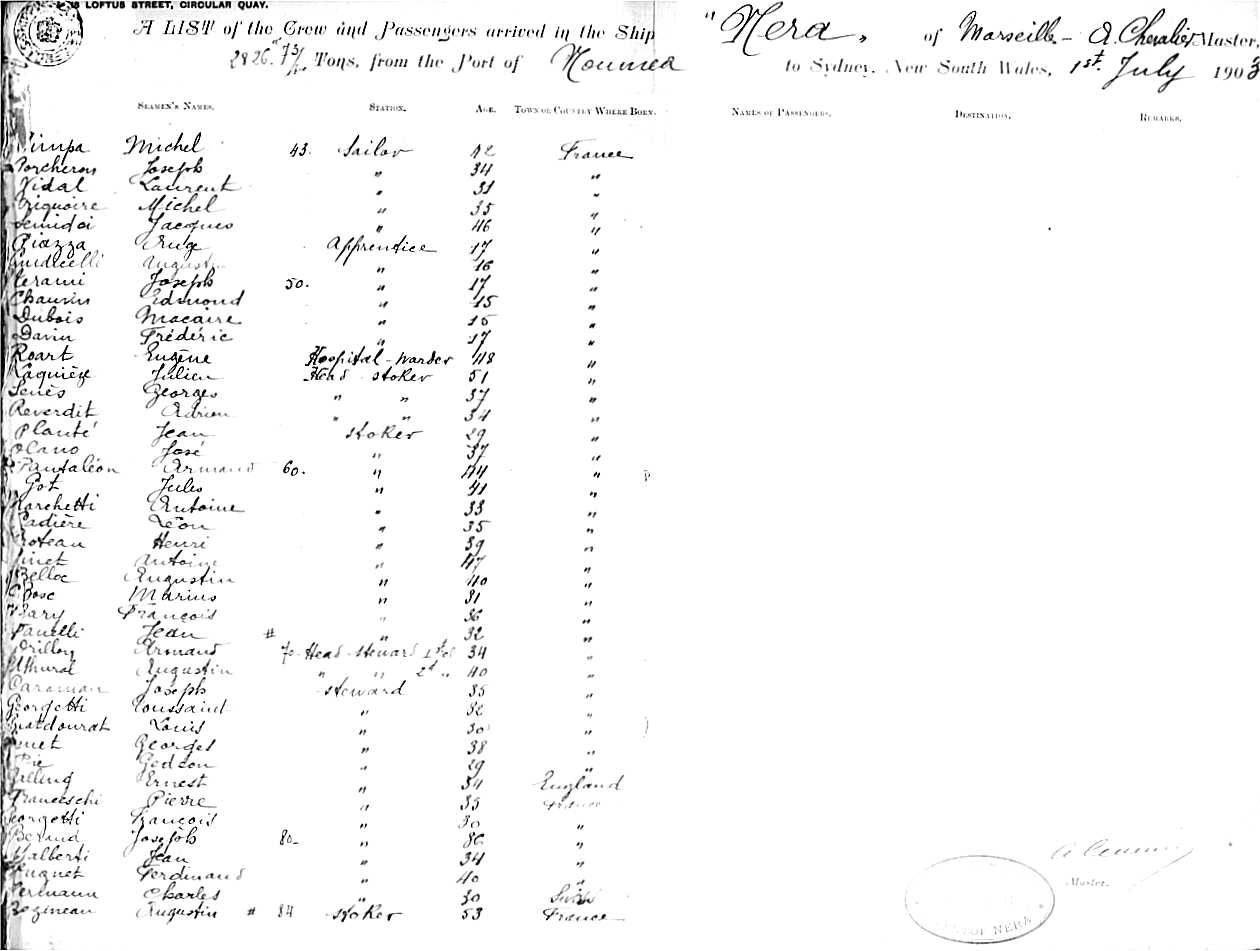 LOFTUS STREET, CIRCULAR QUAY.
A LIST of the Crew and Passengers arrived in the Ship "Nera, of Marseille - A. Chevalier Master,
2826 Tons, from the Port of Noumea to Sydney, New South Wales, 1st. July 1903
SEAMEN'S NAMES. STATION. AGE. TOWN OR COUNTRY WHERE BORN. NAMES OF PASSENGERS. DESTINATION. REMARKS.
Michel 43. Sailor 42 France
Porcheron Joseph " 34 "
Vidal Laurent " 31 "
Michel " 35 "
Jacques " 46 "
Piazza Ange Apprentice 17 "
" 16 "
Joseph 50. " 17 "
Chauvin Edmond " 15 "
Dubois Macaire " 15 "
Davin Frédéric " 17 "
Roart Eugène Hospital-warder 48 "
Julien Head stoker 51 "
Senès Georges " " 37 "
Reverdit Adrien " " 34 "
Planté Jean stoker 29 "
Olano José " 37 "
Pantaléon Armand 60. " 44 "
Got Jules " 41 "
Marchetti Antoine " 33 "
Cadière Léon " 35 "
Henri " 39 "
Antoine " 47 "
Belloc Augustin " 40 "
Marius " 31 "
François " 36 "
Fanelli Jean # " 32 "
Armand 70 Head-steward 1st cl 34 "
Augustin " " 2d " 40 "
Caraman Joseph steward 35 "
Georgetti Toussaint " 32 "
Louis " 30 "
Georges " 38 "
Pie Gedeon " 29 "
Ernest " 34 England
Franceschi Pierre " 35 France
Georgetti François " 30 "
Joseph 80- " 36 "
Jean " 34 "
Huguet Ferdinand " 40 "
Charles " 30 Swiss
Augustin # 84 stoker 53 France
Master.
NERA